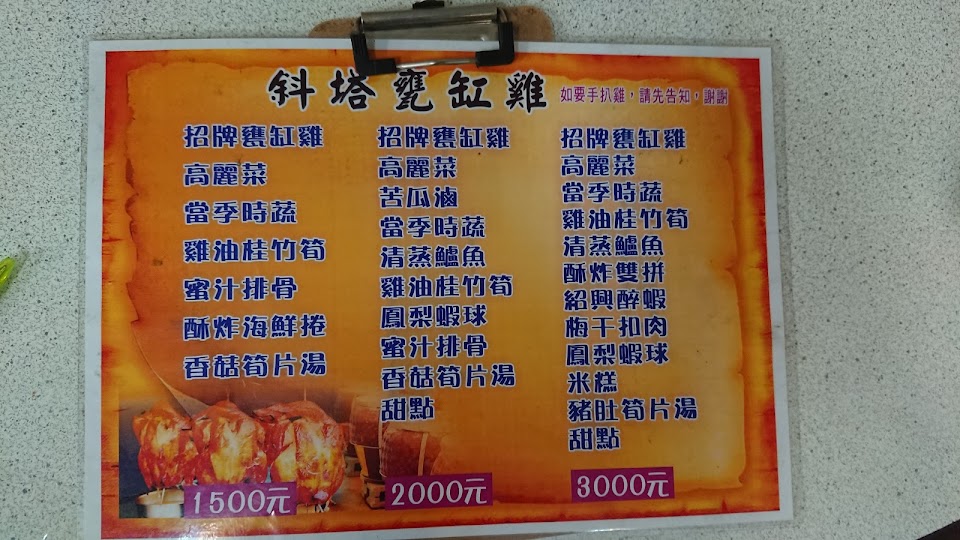 斜塔甕缸雞
如要手扒雞，請先告知，謝謝
招牌甕缸雞
高麗菜
當季時蔬
雞油桂竹筍
蜜汁排骨
酥炸海鮮捲
香菇筍片湯
1500元
招牌甕缸雞
高麗菜
苦瓜滷
當季時蔬
清蒸鱸魚
雞油桂竹筍
鳳梨蝦球
蜜汁排骨
香菇筍片湯
甜點
2000元
招牌甕缸雞
高麗菜
當季時蔬
雞油桂竹筍
清蒸鱸魚
酥炸雙拼
紹興醉蝦
梅干扣肉
鳳梨蝦球
米糕
豬肚筍片湯
甜點
3000元